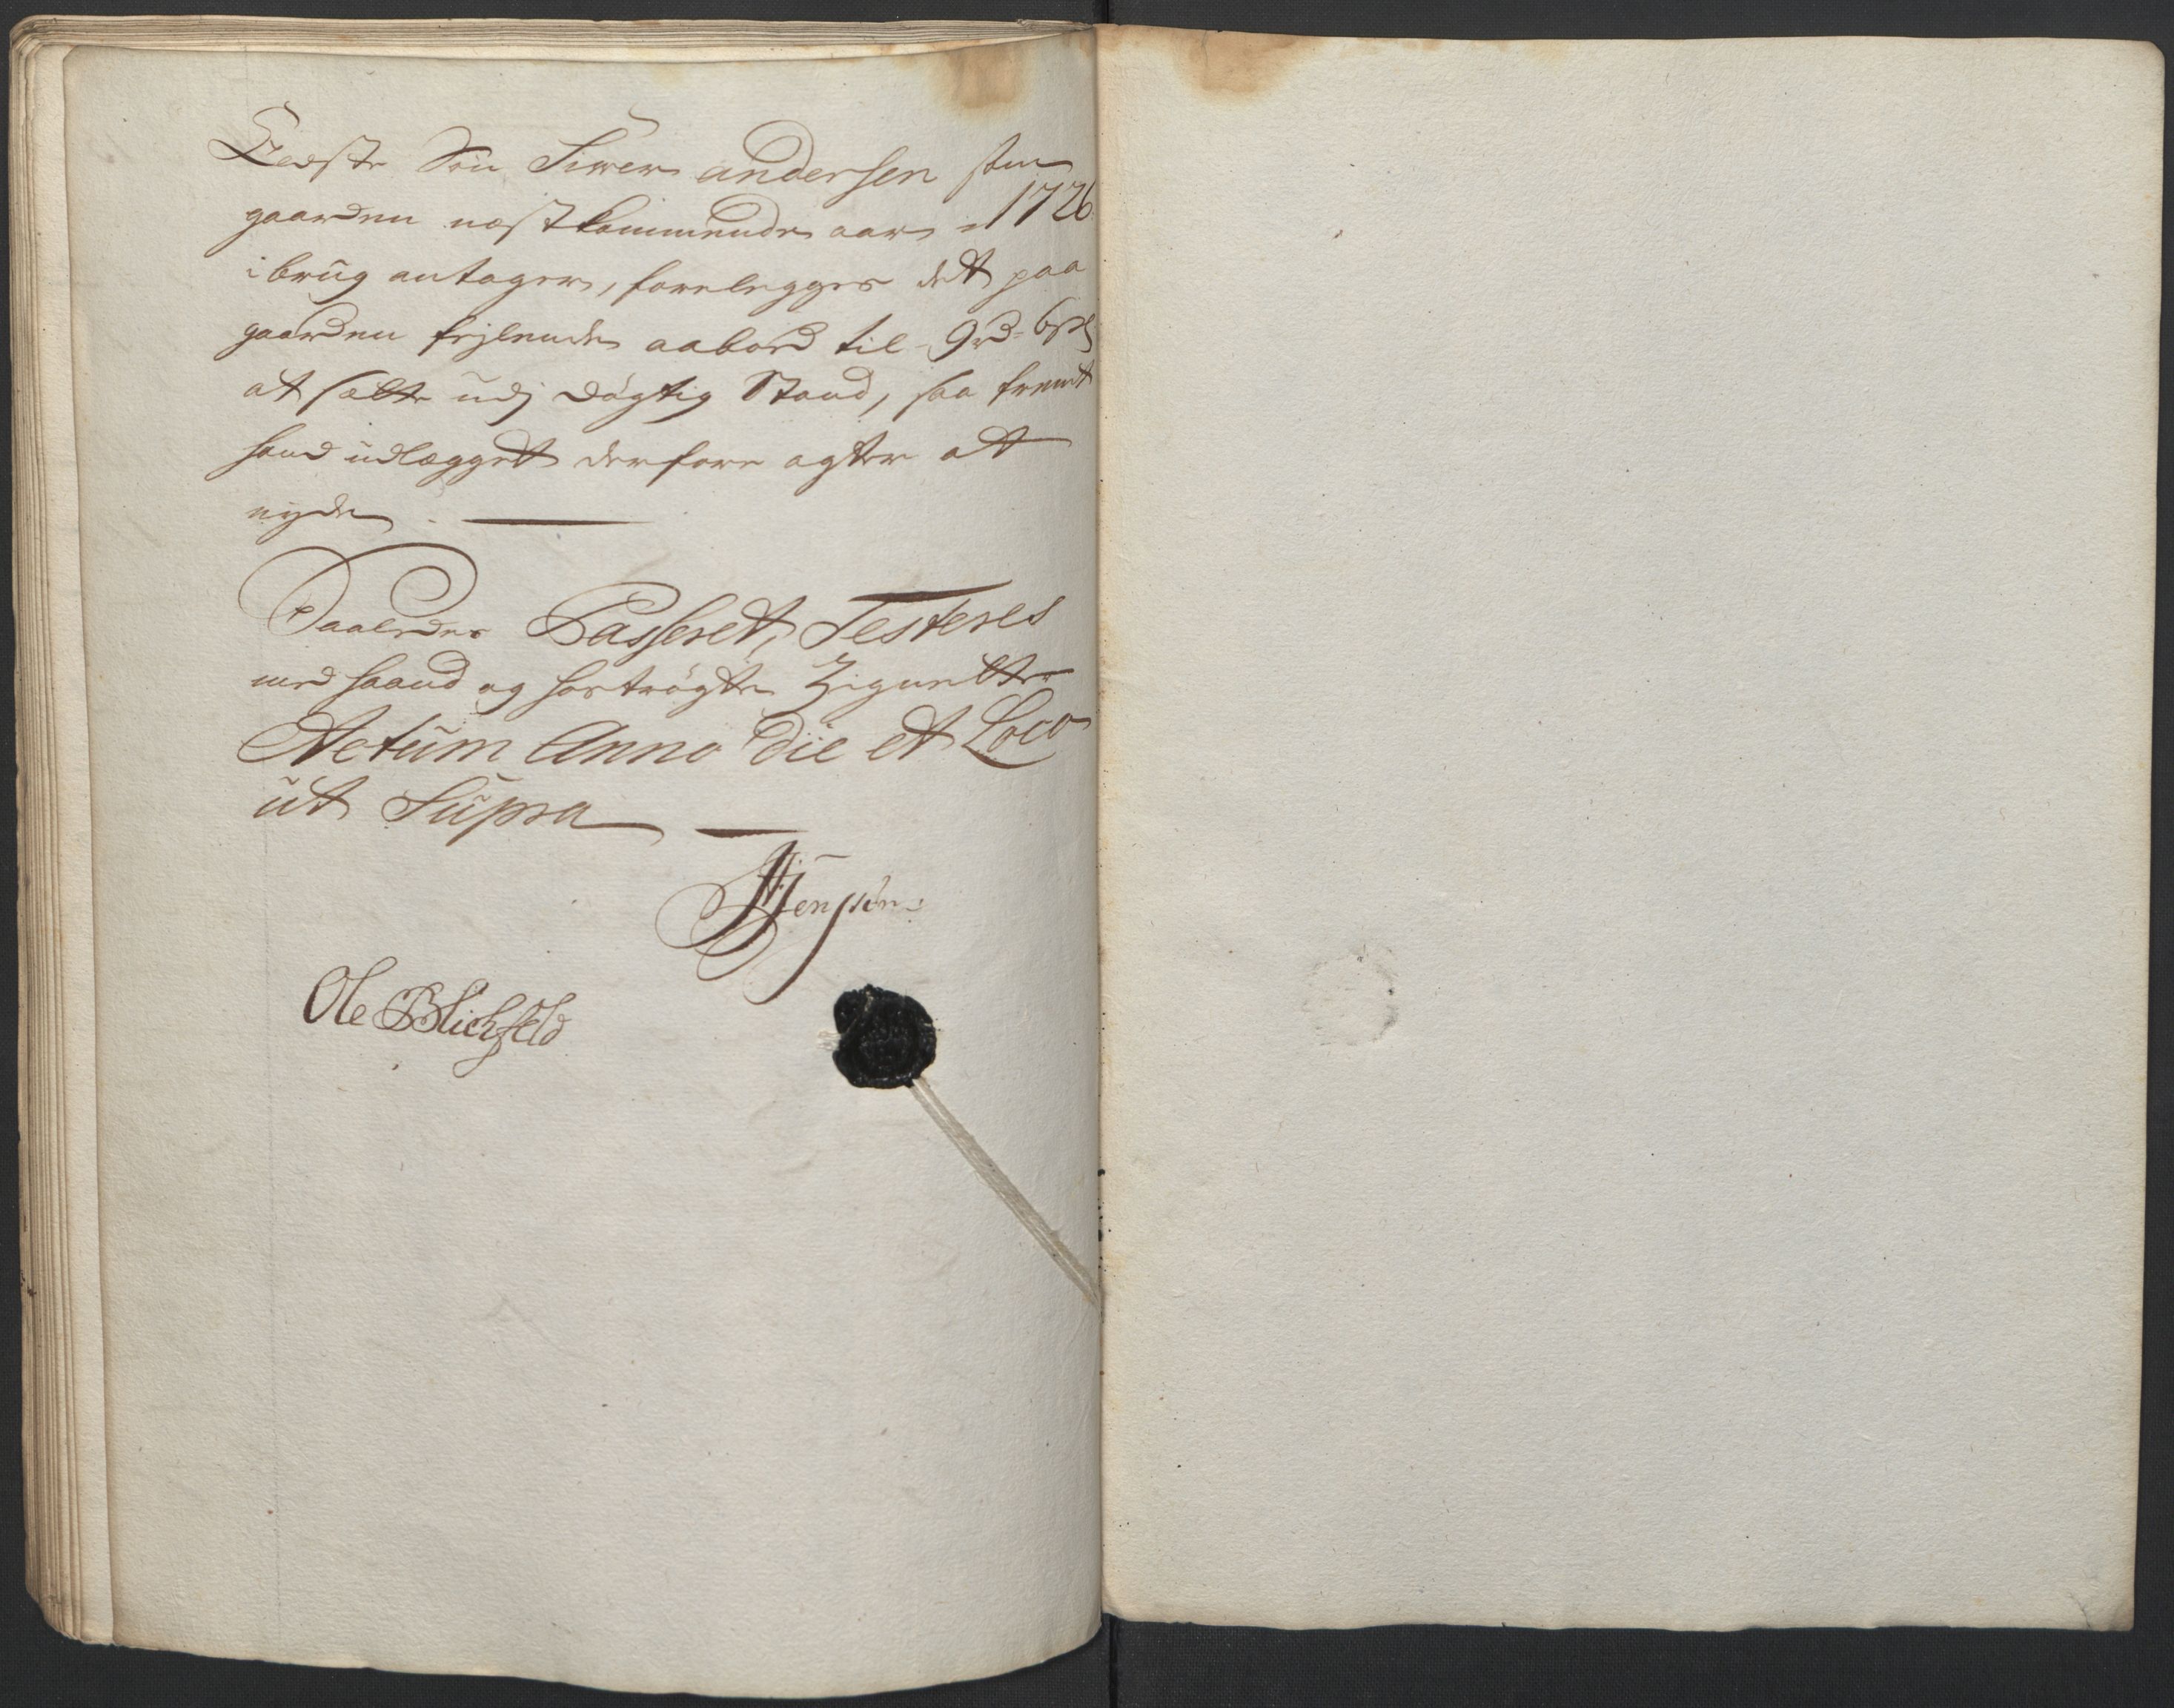 Eedste Søn Siwer andersen som
gaarden næstkommende aar 1726
i brug antager, forelegges det paa
gaarden fejlende aabord til 9 rd
at sætte udj døgtig Stand, saa fremt
hand udlægget derfore agter at
nyde
Saaledes Passeret, Testeres
med haand og hostrøgte Zignetter
Actum Anno die et Loco
ut Supra
Jensøn
Ole Blichfeld